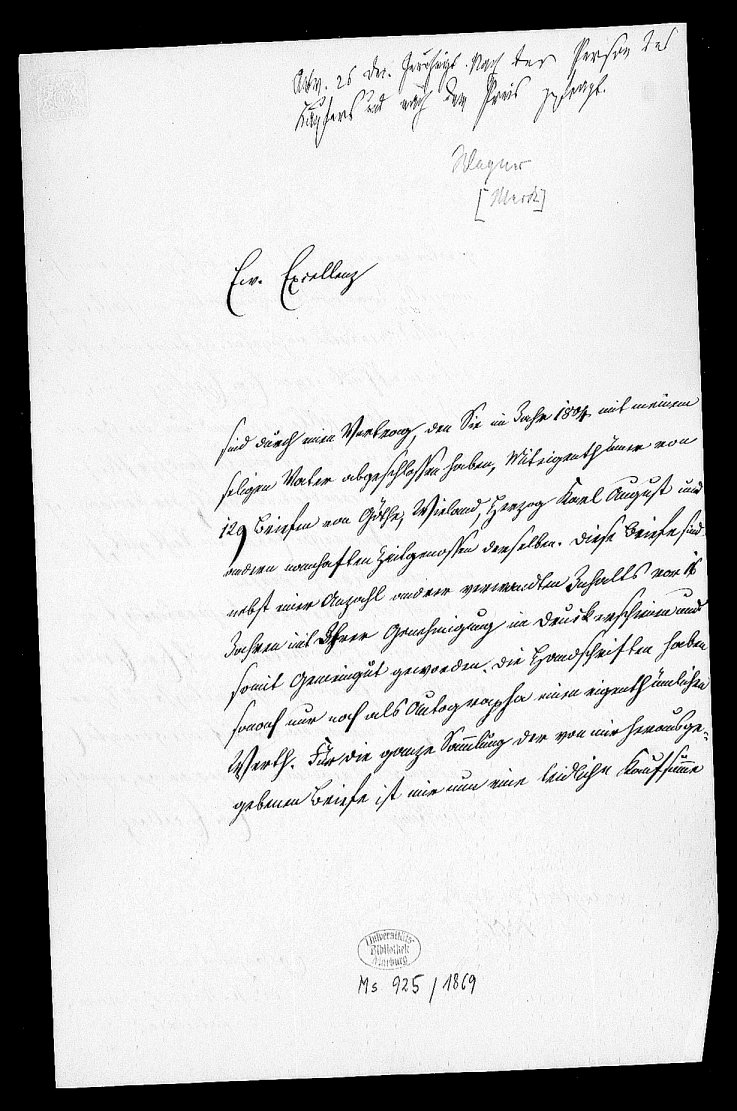 nach der Person des
Käufers und nach dem Preis gefragt.
Wagner
[Merck]
Ew. Excellenz
sind durch einen Vertrag, den Sie im Jahr 1804 mit meinem
seligen Vater abgeschlossen haben, Miteigenthümer von
129 Briefen von Göthe, Wieland, Herzog Karl August und
andern namhaften Zeitgenossen derselben. Diese Briefe sind
nebst einer Anzahl anderer verwandten Inhalts vor
Jahren mit Ihrer Genehmigung im Druck erschienen und
somit Gemeingut geworden. Die Handschriften haben
sonach nur noch als Autographa einen eigenthümlichen
Werth. Für die ganze Sammlung der von mir herausge-
gebenen Briefe ist mir nun eine leidliche Kaufsumme
Universitäts-
Bibliothek
Marburg
Ms 925/1869